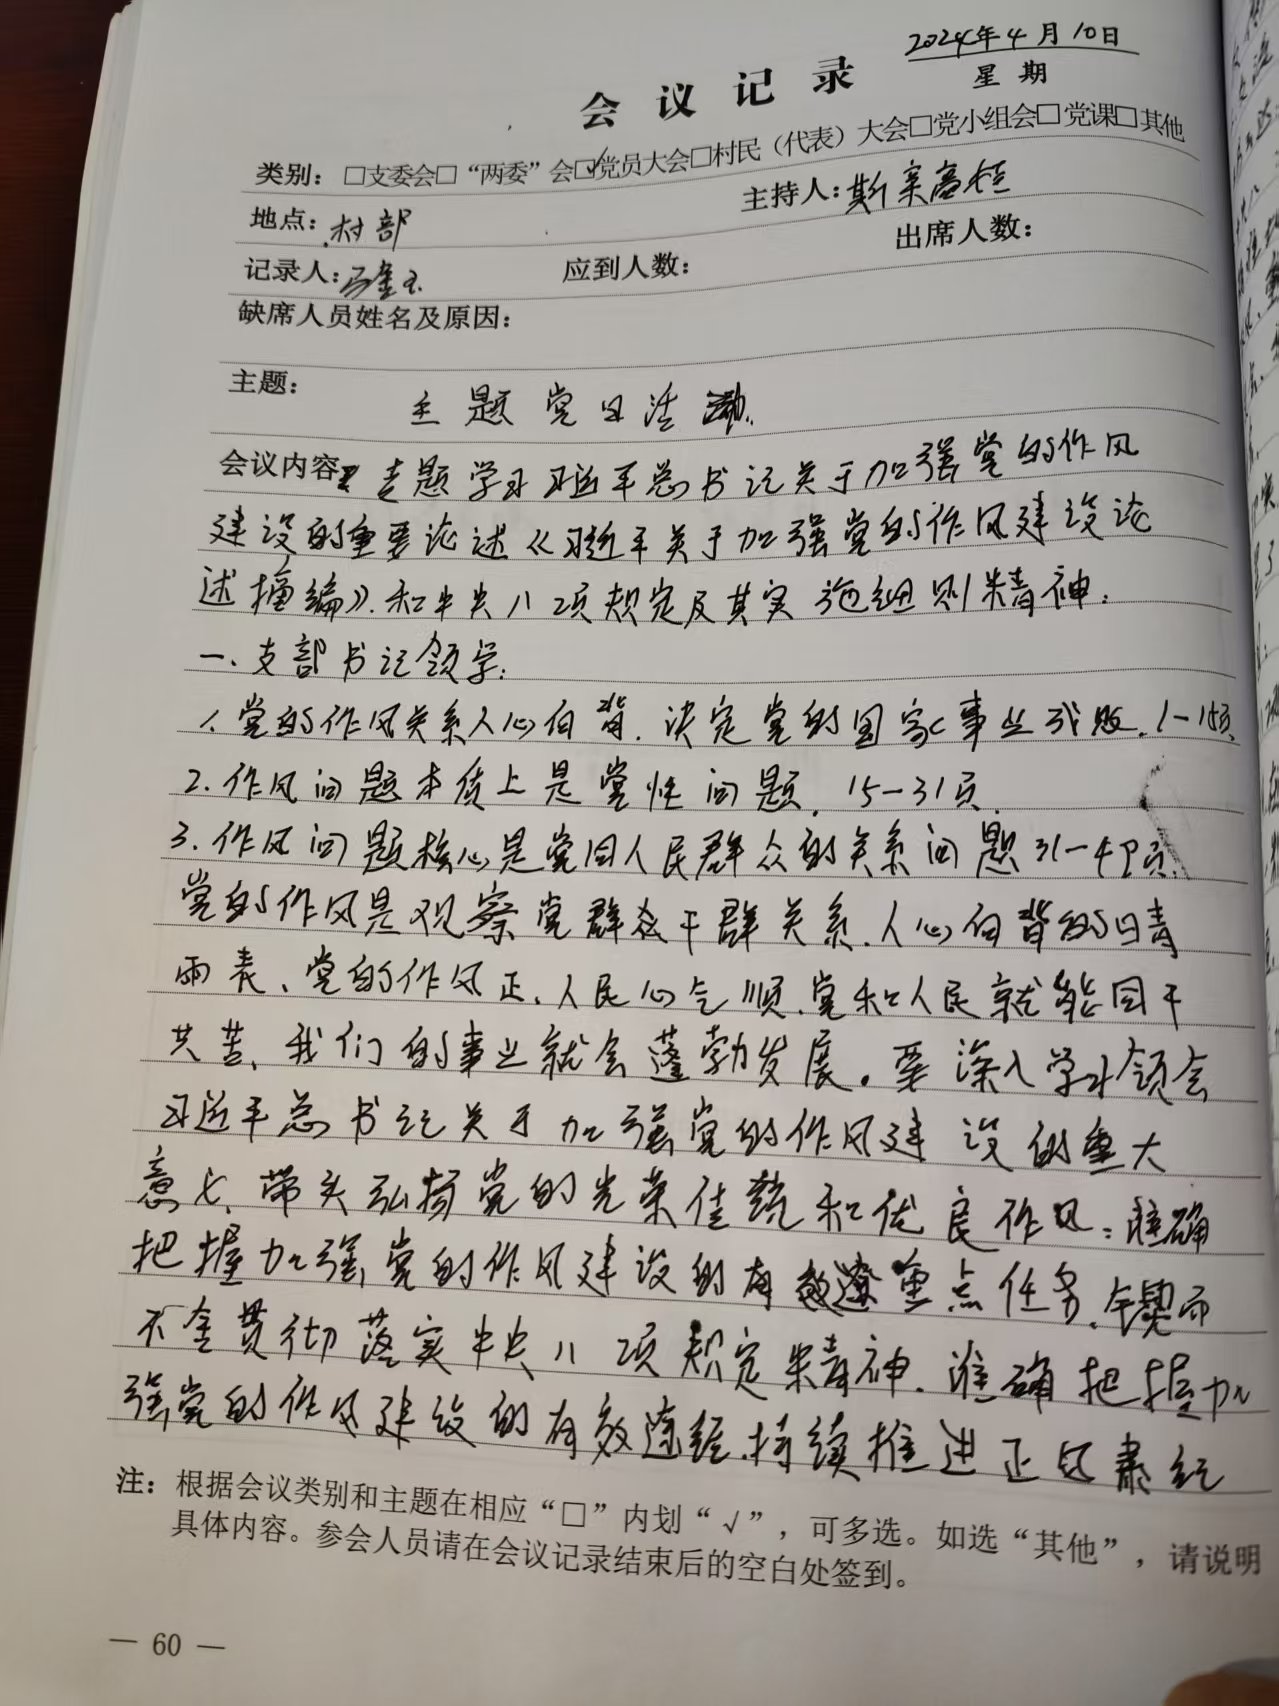 2024年4月10日
会议记录 星期
类别：□支委会□“两委”会☑党员大会□村民（代表）大会□党小组会□党课□其他
地点：村部 主持人：斯亲高娃
记录人：马金玉 应到人数： 出席人数：
缺席人员姓名及原因：
主题：
主题党日活动.
会议内容 专题学习习近平总书记关于加强党的作风
建设的重要论述《习近平关于加强党的作风建设论
述摘编》.和中央八项规定及其实施细则精神.
一、支部书记领学:
1、党的作风关系人心向背.决定党的国家事业成败.1-15页
2.作风问题本质上是党性问题.15-31页.
3.作风问题核心是党同人民群众的关系问题31-49页.
党的作风是观察党群众干群关系.人心向背的日青
雨表、党的作风正.人民心气顺.党和人民就能同干
共苦、我们的事业就会蓬勃发展。要深入学习领会
习近平总书记关于加强党的作风建设的重大
意义、带头弘扬党的光荣传统和优良作风：准确
把握加强党的作风建设的有效重点任务.锲而
不舍贯彻落实中央八项规定精神.准确把握加
强党的作风建设的有效途径.持续推进正风肃纪
注：根据会议类别和主题在相应“□”内划“√”，可多选。如选“其他”，请说明
具体内容。参会人员请在会议记录结束后的空白处签到。
— 60 —